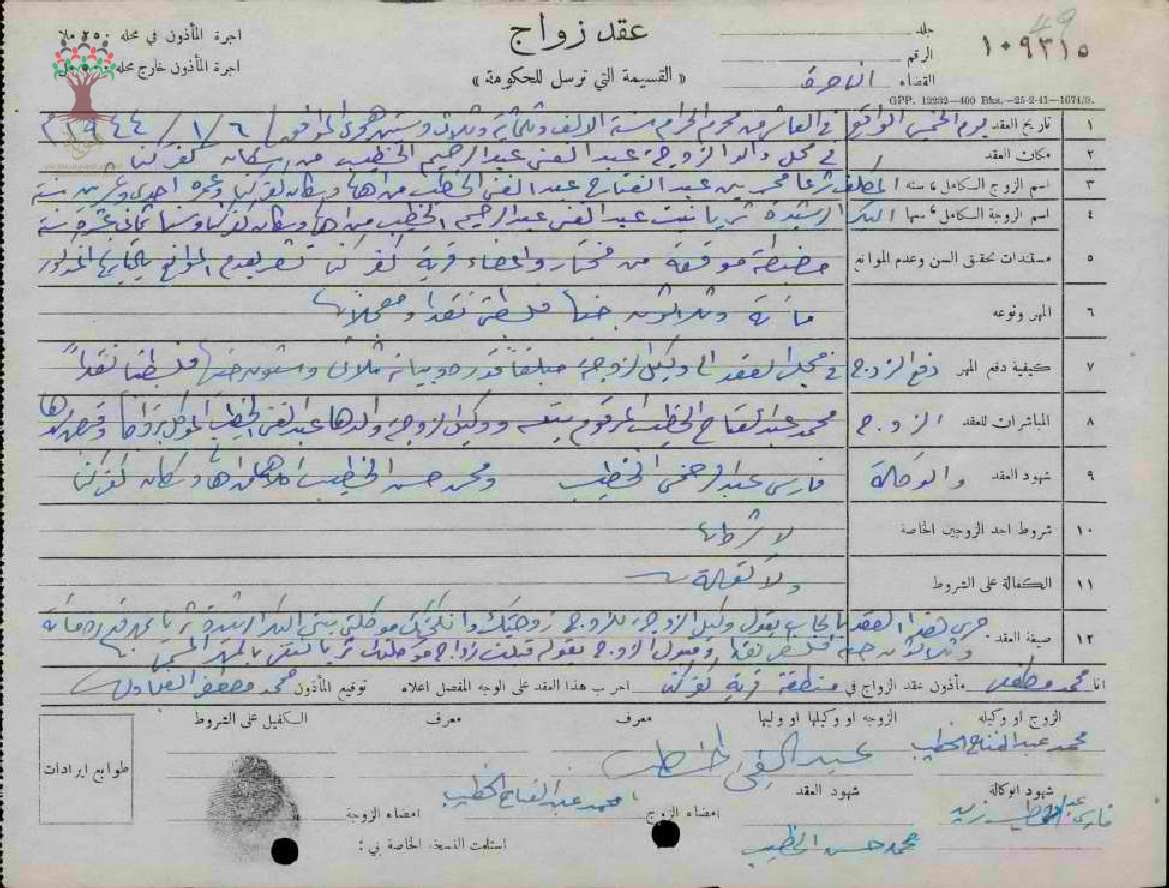 49
١٠٩٣١٥
جلد
الرقم
القضاء الناصرة
عقد زواج
« القسيمة التي ترسل للحكومة »
اجرة المأذون في محله ٢٥٠ ملا
اجرة المأذون خارج محله ٥٠٠ مل
GPP. 12232—400 Bks.—25-2-41—1074/S.
١ تاريخ العقد يوم الخميس الواقع في العاشر من محرم الحرام سنة الالف وثلثماية وثلاث وستين هجري الموافق ٦ / ١ / ٩٤٤
٢ مكان العقد في محل والد الزوجة عبد الغني عبد الرحيم الخطيب من سكان كفركنا
٣ اسم الزوج الكامل، سنه المكلف شرعا محمد بن عبد الفتاح عبد الغني الخطيب من اهالي وسكان كفركنا وعمره احدى وعشرين سنة
٤ اسم الزوجة الكامل، سنها البكر الرشيدة ثريا بنت عبد الغني عبد الرحيم الخطيب من اهالي وسكان كفركنا وسنها ثماني عشرة سنة
٥ مستندات تحقق السن وعدم الموانع مضبطة موقعة من مختار واعضاء قرية كفركنا تشعر بعدم الموانع
٦ المهر ونوعه ماية وثلاثون جنيها فلسطينيا نقدا
٧ كيفية دفع المهر دفع الزوج في مجلس العقد الى وكيل الزوجة مبلغا قدره وثلاثون جنيها فلسطينيا نقدا
٨ المباشران للعقد الزوج محمد عبد الفتاح الخطيب المرقوم بنفسه ووكيل الزوجة والدها عبد الغني الخطيب
٩ شهود العقد والوكالة فارس عبد الرحمن الخطيب ومحمد حسن الخطيب كلاهما من اهالي وسكان كفركنا
١٠ شروط احد الزوجين الخاصة لا شروط
١١ الكفالة على الشروط ولا كفالة
١٢ صيغة العقد جرى هذا العقد بايجاب بقول وكيل الزوجة للزوج زوجتك وانكحتك موكلتي بنتي البكر الرشيدة ثريا بمهر قدره ماية
وثلاثون جنيه فلسطيني نقدا وقبول الزوج بقوله قبلت زواج موكلتك ثريا لنفسي بالمهر المسمى
انا محمد مصطفى مأذون عقد الزواج في منطقة قرية كفركنا اجرب هذا العقد على الوجه المفصل اعلاه توقيع المأذون محمد مصطفى
الزوج او وكيله الزوجه او وكيلها او وليها معرف معرف الكفيل على الشروط
محمد عبد الفتاح الخطيب عبد الغني الخطيب
طوابع ايرادات
شهود الوكالة شهود العقد امضاء الزوج محمد عبد الفتاح الخطيب امضاء الزوجة
فارس
محمد حسن الخطيب
استلمت النسخة الخاصة بي :